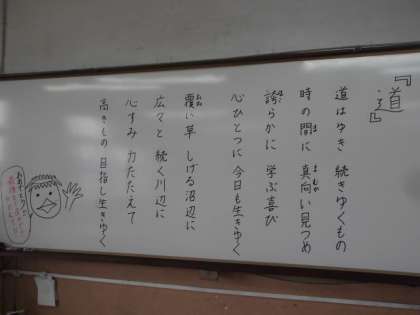 『道』
道はゆき 続きゆくもの
時の間に 真向い見つめ
誇らかに 学ぶ喜び
心ひとつに 今日も生きゆく
覆い草 しげる沼辺に
広々と 続く川辺に
心すみ 力たたえて
高きもの 目指し生きゆく